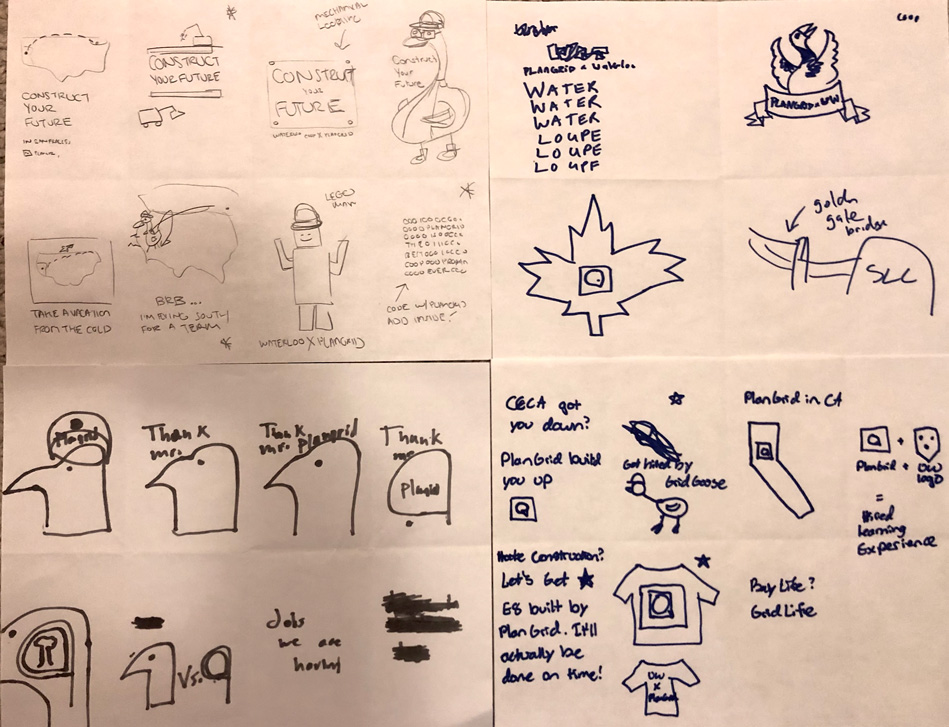 CONSTRUCT
YOUR
FUTURE
CONSTRUCT
YOUR FUTURE
MECHANICAL
LOOKING
CONSTRUCT
YOUR
FUTURE
WATERLOO X PLANGRID
Construct
Your
Future
TAKE A VACATION
FROM THE COLD
BRB...
I'M FLYING SOUTH
FOR A TEAM
LEGO
MAN
WATERLOO X PLANGRID
CODE W/ PLANGRID
ADD INSIDE!
PLANGRID x Waterloo
WATER
WATER
WATER
LOUPE
LOUPE
LOUPE
LOOP
PLANGRID x UW
golden
gate
bridge
SLC
Plangrid
Thank
mr.
Thank
mr. Plangrid
Thank
mr.
Plangrid
Vs.
Jobs
we are
having
CECA got
you down?
PlanGrid build
you up
Got hired by
Grid Goose
PlanGrid in CA
PlanGrid + UW
logo
=
Hired
Learning
Experience
Hate Construction?
Let's Get
E8 built by
PlanGrid. It'll
actually be
done on time!
UW
X
PlanGrid
Bay Life?
Grid Life